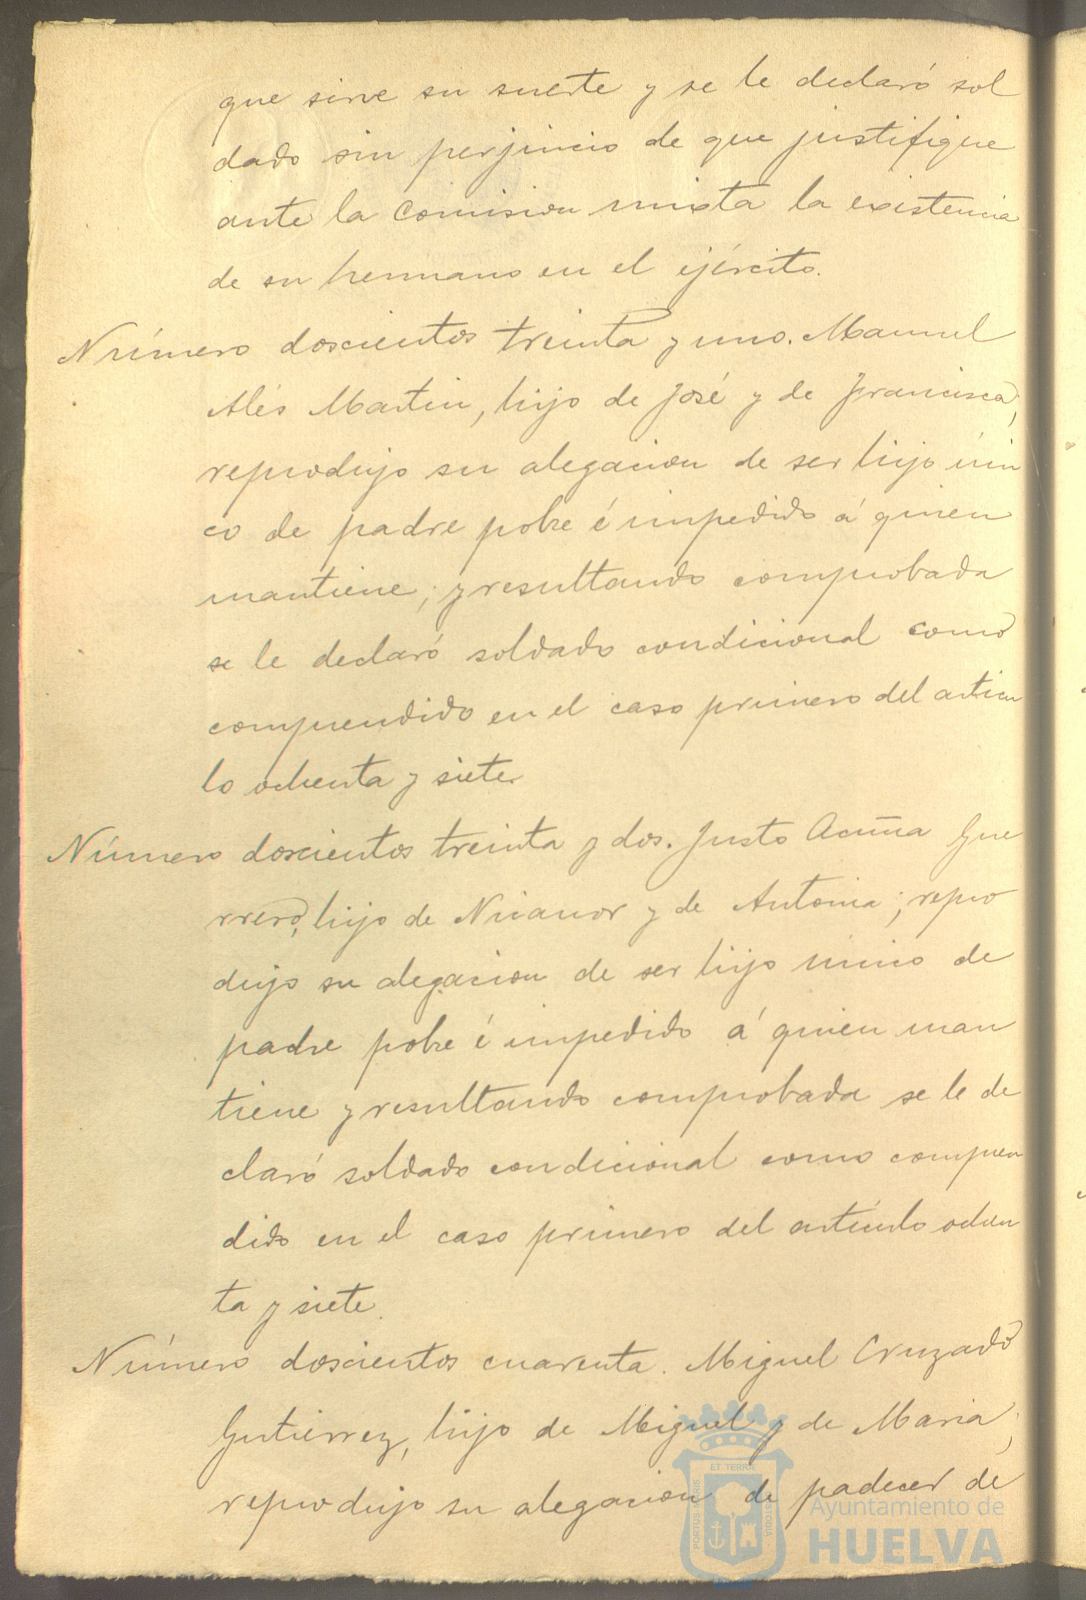 que sirve su suerte y se le declaró sol
dado sin perjuicio de que justifique
ante la Comision mixta la existencia
de su hermano en el ejército.
Número doscientos treinta y uno. Manuel
Alés Martin, hijo de José y de Francisca,
reprodujo su alegacion de ser hijo úni
co de padre pobre é impedido á quien
mantiene; y resultando comprobada
se le declaró soldado condicional como
comprendido en el caso primero del articu
lo ochenta y siete
Número doscientos treinta y dos. Justo Acuña Gue
rrero, hijo de Nicanor y de Antonia; repro
dujo su alegacion de ser hijo único de
padre pobre é impedido á quien man
tiene y resultando comprobada se le de
claró soldado condicional como compren
dido en el caso primero del artículo ochen
ta y siete.
Número doscientos cuarenta. Miguel Cruzado
Gutierrez, hijo de Miguel y de Maria,
reprodujo su alegacion de padecer de
ET TERRE
PORTUS MARIS
CUSTODIA
Ayuntamiento de
HUELVA